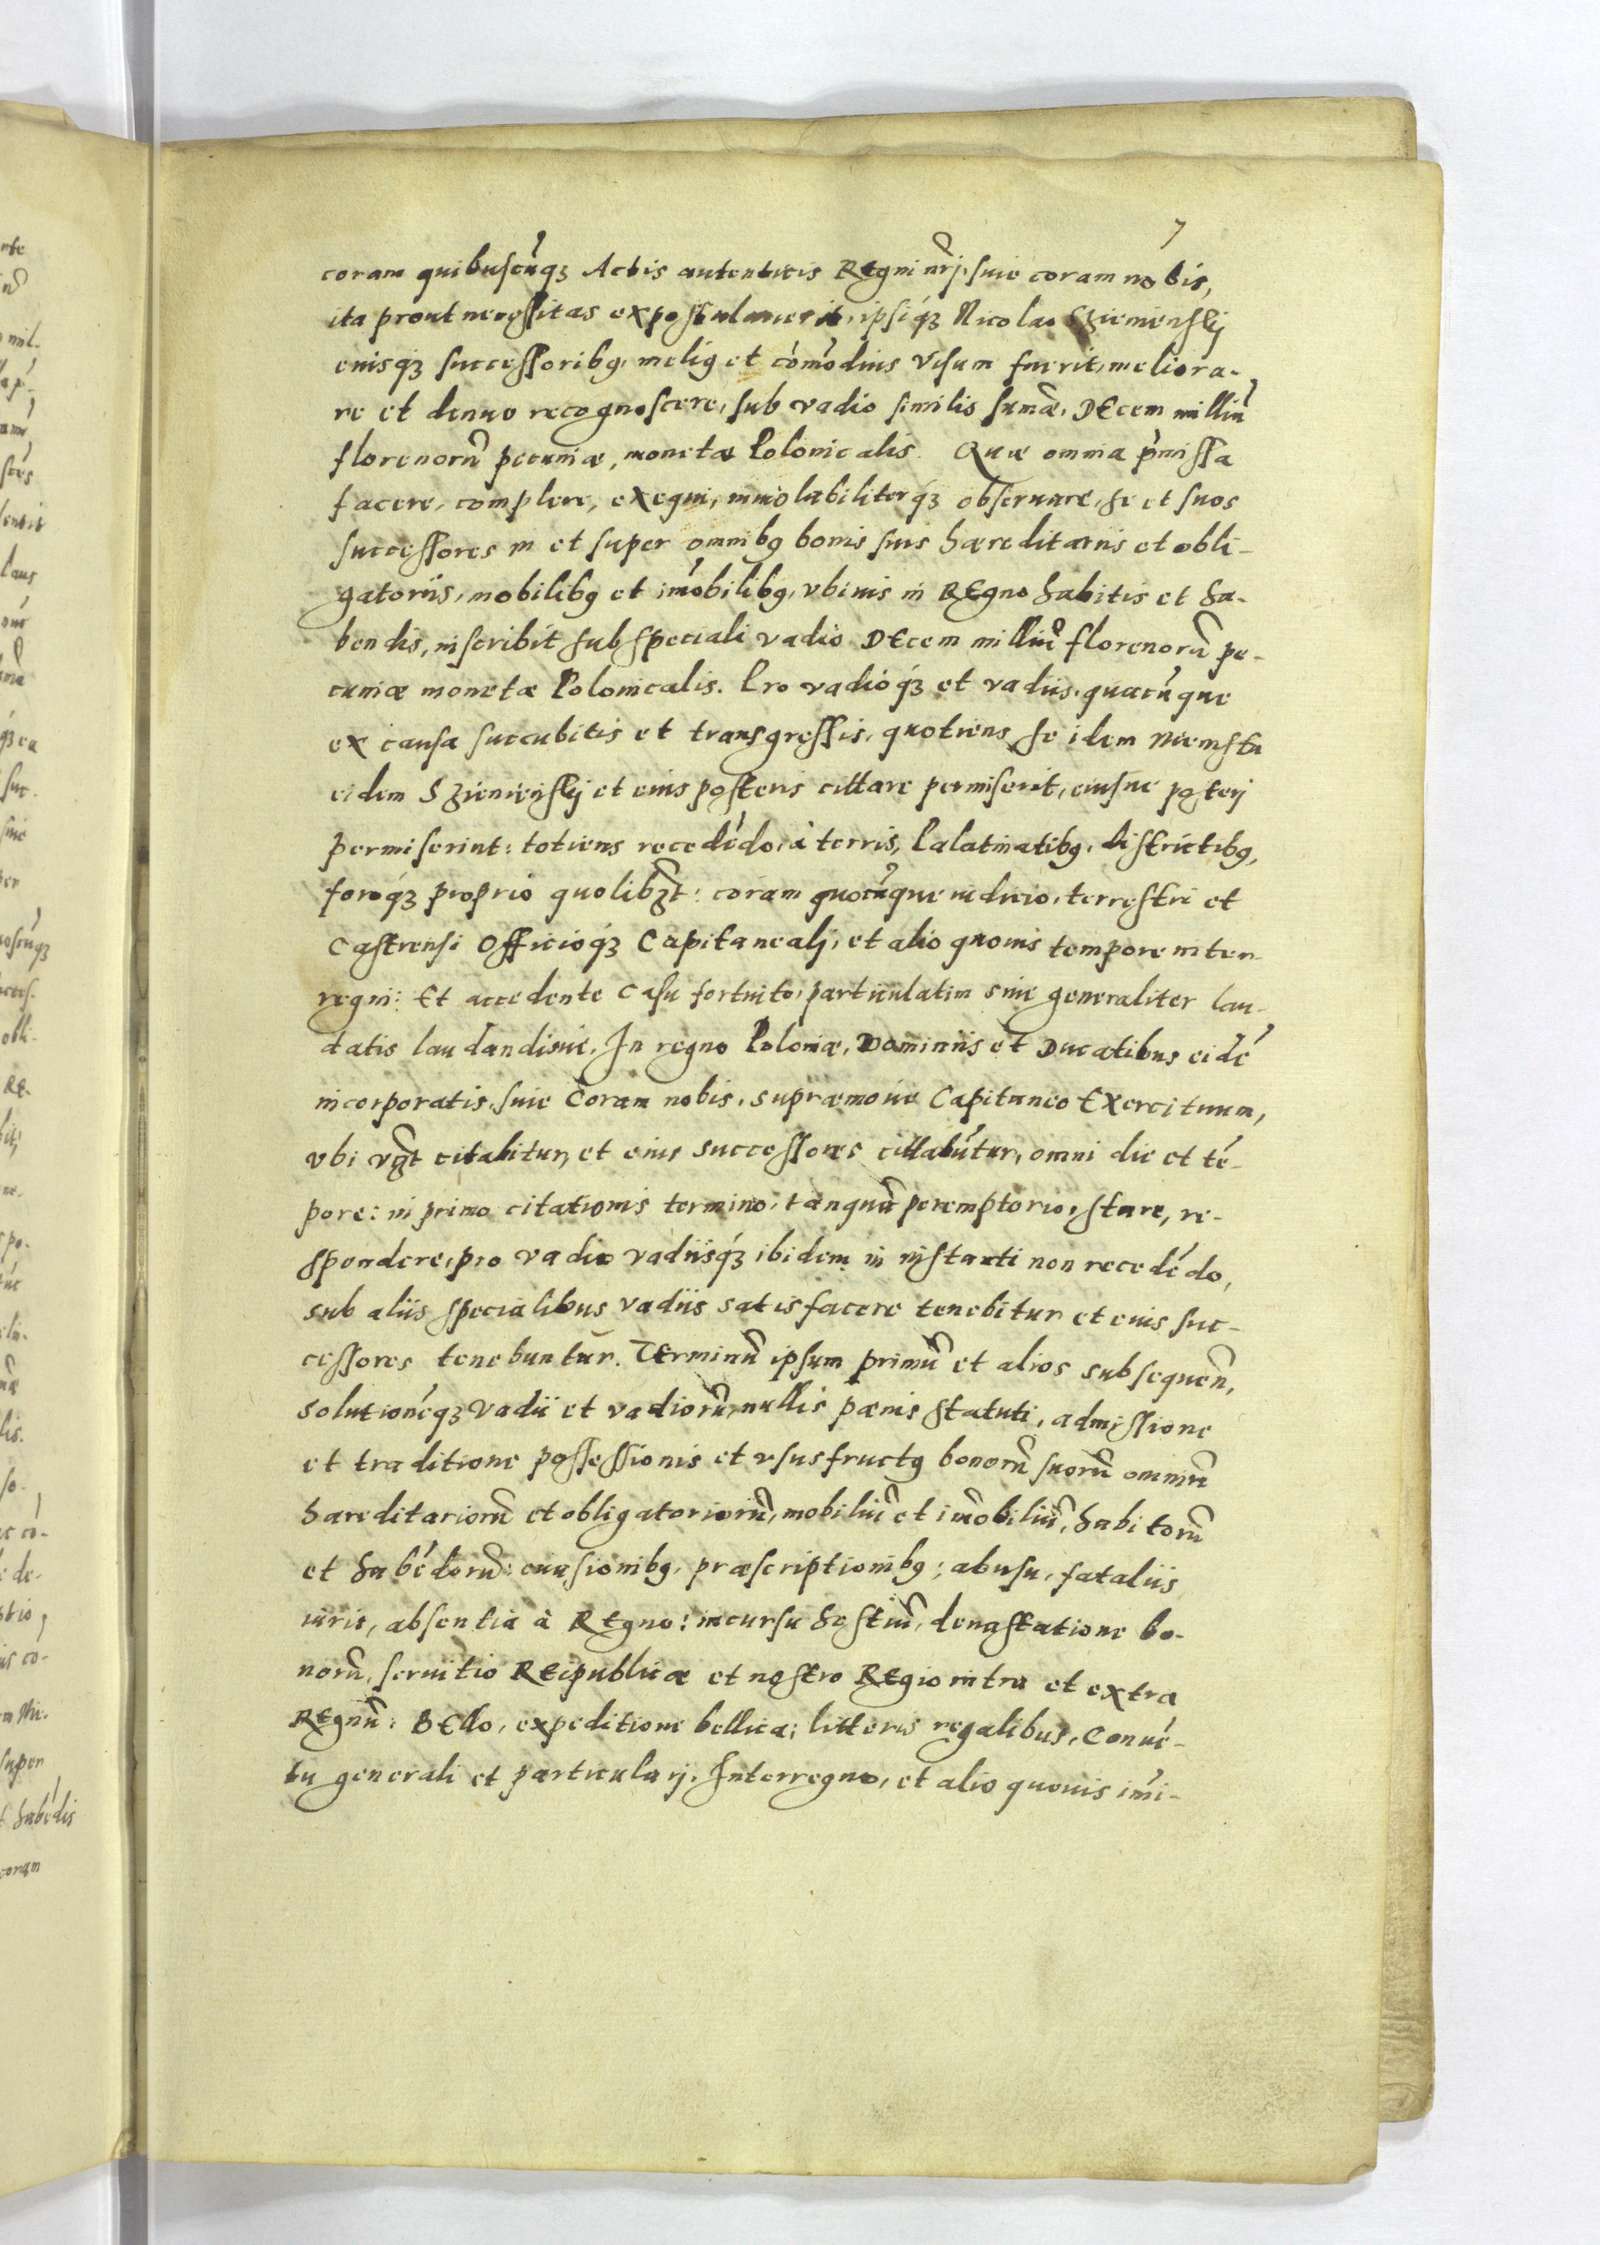 7
coram quibuscūq₃ Actis autenticis Regni nr̃j, siue coram nobis,
ita prout necessitas expostulauerit, ipsiq́₃ Nicolao Szieniensķij
eiusq́₃ successorib9, meli9 et cōmodius visum fuerit, meliora-
re et denuo recognoscere, sub vadio similis sum̃æ, Decem milliū
florenorū pecuniæ, monetæ Polonicalis. Quæ omnia p̃missa
facere, complere, exequi, inuiolabiliterq́₃ obseruare, se et suos
successores in et super omnib9 bonis suis hæreditariis et obli-
gatoriis, mobilib9 et im̃obilib9, vbiuis in Regno habitis et ha-
bendis, inscribit sub speciali vadio Decem milliū florenorū pe-
cuniæ monetæ Polonicalis. Pro vadioq́₃ et vadiis, quacūque
ex causa succubitis et transgressis, quotiens se idem Niemsta
eidem Szieniensķij et eius posteris cittare permiserit, eiusue posterj
permiserint: totiens recedēdo, à terris, Palatinatib9, districtib9,
foroq́₃ proprio quolib₃t: coram quocūque iudicio, terrestri et
Castrensi Officioq́₃ Capitanealj, et alio quouis tempore inter-
regni: Et accedente Casu fortuito, particulatim siue generaliter lau-
datis laudandisue, In regno Poloniæ, Dominiis et Ducatibus eidē
incorporatis, siue Coram nobis, supræmoue Capitaneo Exercituum,
vbi v₃t citabitur, et eius successores cittabūtur, omni die et tē-
pore: in primo citationis termino, tanquā peremptorio, stare, re-
spondere, pro vadio vadiisq́₃ ibidem in instanti non recedēdo,
sub aliis specialibus vadiis satisfacere tenebitur et eius suc-
cessores tenebuntur. Terminū ipsum primū et alios subsequeñ,
solutionēq₃ vadii et vadiorū, nullis pœnis statuti, admissione
et traditione possessionis et vsusfruct9 bonorū suorū omniū
hæreditariorū et obligatoriorū, mobiliū et im̃obiliū, habitorū
et habēdorū: euasionib9, præscriptionib9; abusu, fataliis
iuris, absentia à Regno: incursu hostiū, deuastatione bo-
norū, seruitio Reipublicæ et nostro Regio intra et extra
Regnū: Bello, expeditione bellica; litteris regalibus, Conuē-
tu generali et particularj. Interregno, et alio quouis im̃i-